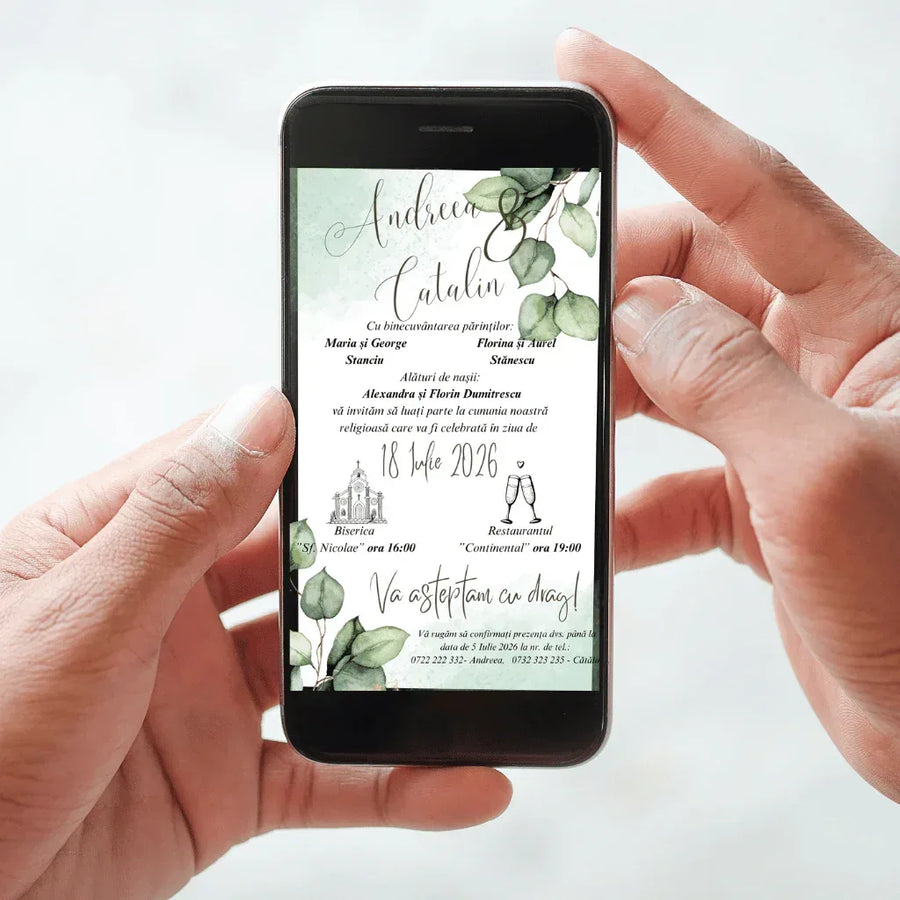 Andreea &
Catalin
Cu binecuvântarea părinților:
Maria și George Florina și Aurel
Stanciu Stănescu
Alături de nașii:
Alexandra și Florin Dumitrescu
vă invităm să luați parte la cununia noastră
religioasă care va fi celebrată în ziua de
18 Iulie 2026
Biserica Restaurantul
"Sf. Nicolae" ora 16:00 "Continental" ora 19:00
Va asteptam cu drag!
Vă rugăm să confirmați prezența dvs. până la
data de 5 Iulie 2026 la nr. de tel.:
0722 222 332- Andreea, 0732 323 235 - Cătăl